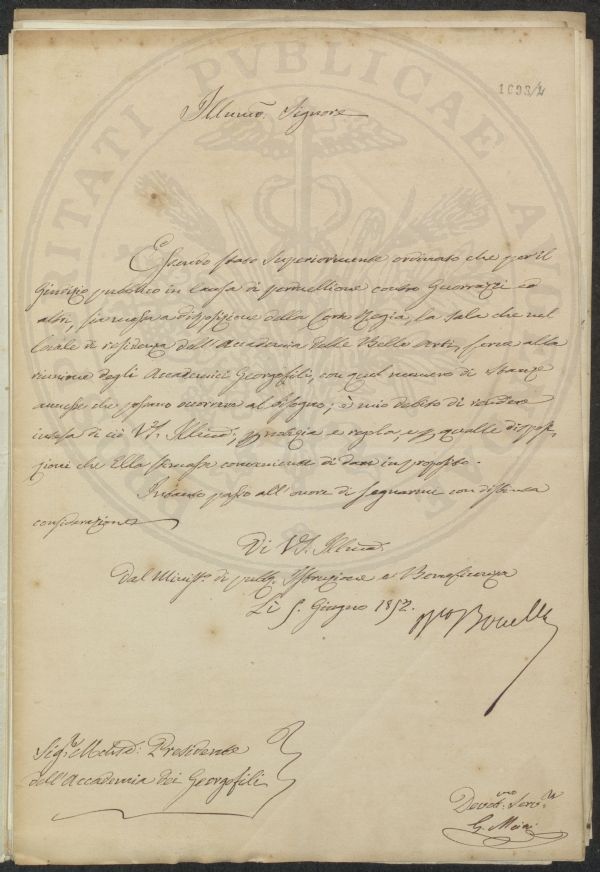 1693/4
Illumo. Signore
Essendo stato Superiormente ordinato che per il
Giudizio pubblico in Causa di perduellione contro Guerrazzi ed
altri, sia messa a disposizione della Corte Regia, la sala che nel
locale di residenza dell'Accademia delle Belle Arti, serve alla
riunione degli Accademici Georgofili, con quel numero di Stanze
annesse che possano occorrere al bisogno; è mio debito di rendere
intesa di ciò VS. Illma., p notizia e regola, e p quelle disposi-
zioni che Ella stimasse conveniente di dare in proposito.
Intanto passo all'onore di segnarmi con distinta
considerazione
Di VS. Illma.
Dal Ministo. di pubb. Istruzione e Beneficenza
Lì 5. Giugno 1852.
Sigr. March. Presidente
dell'Accademia dei Georgofili
Devotmo. Servre.